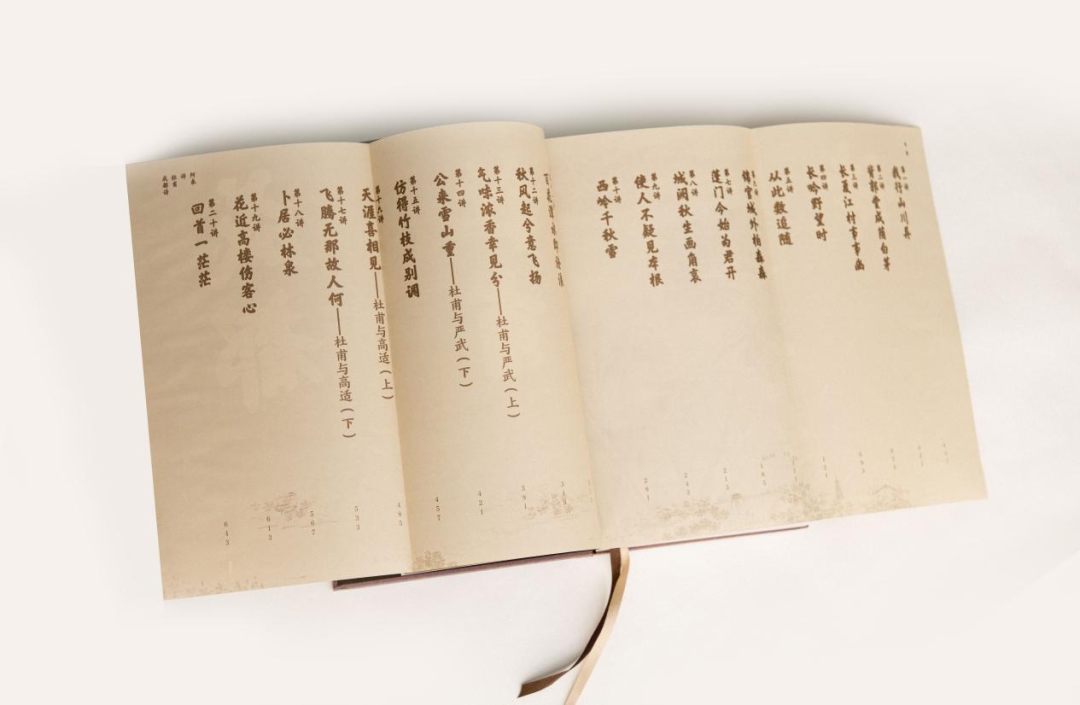 第一讲
我行山川异
第二讲
背郭堂成荫白茅
第三讲
长夏江村事事幽
第四讲
长吟野望时
第五讲
从此数追随
锦官城外柏森森
第七讲
蓬门今始为君开
第八讲
城阙秋生画角哀
213
第九讲
使人不疑见本根
243
第十讲
西岭千秋雪
281
第十二讲
秋风起兮意飞扬
第十三讲
气味浓香幸见分——杜甫与严武（上）
391
第十四讲
公来雪山重——杜甫与严武（下）
421
第十五讲
仿得竹枝成别调
457
第十六讲
天涯喜相见——杜甫与高适（上）
495
第十七讲
飞腾无那故人何——杜甫与高适（下）
533
第十八讲
卜居必林泉
567
第十九讲
花近高楼伤客心
613
第二十讲
回首一茫茫
643
阿来
讲
杜甫
成都诗